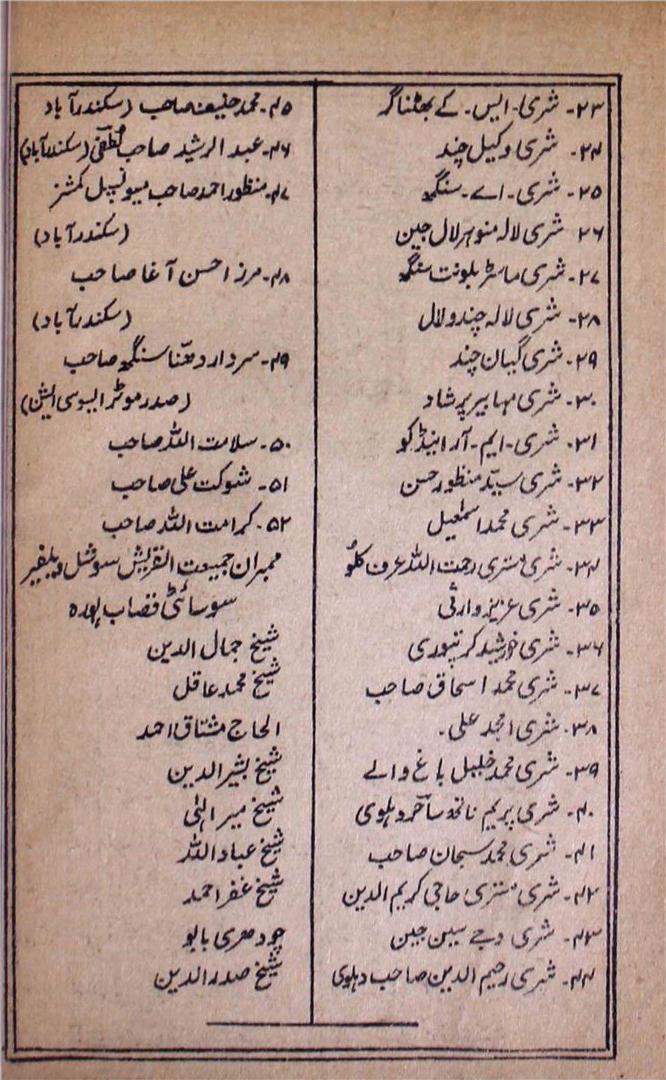 ۲۳۔ شری۔ ایس۔ کے بھٹناگر
۲۴۔ شری وکیل چند
۲۵۔ شری۔ اے۔ سنگھ
۲۶۔ شری لالہ منوہر لال جین
۲۷۔ شری ماسٹر بلونت سنگھ
۲۸۔ شری لالہ چندولال
۲۹۔ شری گیان چند
۳۰۔ شری مہابیر پرشاد
۳۱۔ شری۔ ایم۔ آر اینڈ کو
۳۲۔ شری سیّد منظور حسن
۳۳۔ شری محمد اسمٰعیل
۳۴۔ شری مستری رحمت اللہ عرف کلّو
۳۵۔ شری عزیز وارثی
۳۶۔ شری خورشید کرتپوری
۳۷۔ شری محمد اسحاق صاحب
۳۸۔ شری امجد علی۔
۳۹۔ شری محمد خلیل باغ والے
۴۰۔ شری پریم ناتھ ساحر دہلوی
۴۱۔ شری محمد سبحان صاحب
۴۲۔ شری مستری حاجی کریم الدین
۴۳۔ شری وجے سین جین
۴۴۔ شری رحیم الدین صاحب دہلوی
۴۵۔ محمد حنیف صاحب (سکندرآباد
۴۶۔ عبدالرشید صاحب لطفی (سکندرآباد)
۴۷۔ منظور احمد صاحب میونسپل کمشنر
(سکندرآباد)
۴۸۔ مرزا حسن آغا صاحب
(سکندرآباد)
۴۹۔ سردار دھنّا سنگھ صاحب
(صدر موٹر ایسوسی ایشن)
۵۰۔ سلامت اللہ صاحب
۵۱۔ شوکت علی صاحب
۵۲۔ کرامت اللہ صاحب
ممبران جمیعت القریش سوشل ویلفیر
سوسائٹی قصاب پورہ
شیخ جمال الدین
شیخ محمد عاقل
الحاج مشتاق احمد
شیخ بشیر الدین
شیخ میر الٰہی
شیخ عباد اللہ
شیخ غفر احمد
چودھری بابو
شیخ صدر الدین